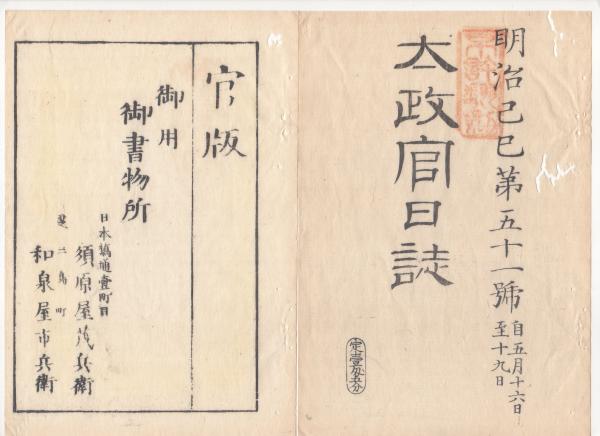 明治己巳第五十一號
自五月十六日
至十九日
太政官日誌
定壹匁五分
官版
御用
御書物所
日本橋通壹町目
須原屋茂兵衛
芝三島町
和泉屋市兵衛